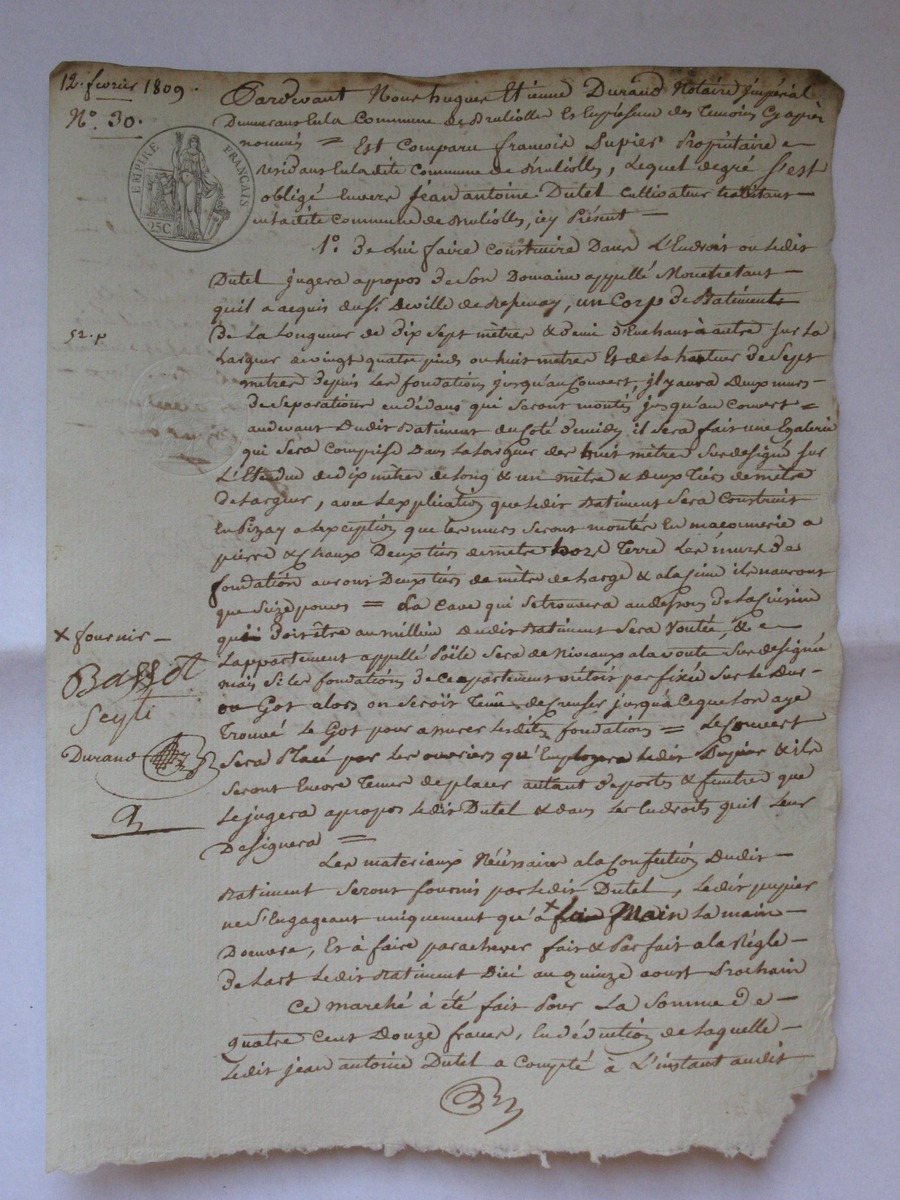 12. fevrier 1809.
N°. 30.
EMPIRE FRANÇAIS
25C
Pardevant Nous hugues Etienne Durand Notaire jmpérial
Demeurant en la Commune de Brulliolle Et En présence des Temoins Cy après
nommés = Est Comparu francois Dupier Propriétaire
Residant En ladite Commune de Brulliolles, Lequel de gré s'est
obligé Envers Jean antoine Dutel Cultivateur habitant
en ladite Commune de Brulliolles, icy Présent —
1°. de Lui faire Construire Dans L'Endroit ou ledit
Dutel jugera apropos de Son Domaine appellé
quil a acquis du Sr. Deville de , un Corp de Batiments
52. p
De La Longueur de dix Sept mètre & demi d'un chant à autre sur La
Largeur de vingt quatre pieds ou huit mètres Et de la hauteur de Sept
mètres depuis Les fondations jusqu'au Couvert, jl y aura Deux murs
de Separations en dédans qui Seront montés jusqu'au Couvert =
audevant Dudit Batiment du Coté de midi il Sera fait une Egalerie
qui Sera Comprise Dans la Largeur des huit mètres Sus designé sur
L'Etendue de dix mètre de long & un mètre & Deux tiers de mètre
de largeur, avec L'explication que ledit Batiment Sera Construit
en Pizay a L'exception que les murs Seront montés En maconnerie a
pierre & Chaux Deux tiers de mètre hors Terre Les murs de
fondation auront Deux tiers de mètre de Large & a la Cime ils n'auront
que Seize pouces = La Cave qui Se trouvera audessous de La Cuisine
qui doit être au millieu dudit Batiment Sera Voutée, &
L'appartement appellé Poële Sera de Niveaux a la voute Sus designée
mais Si les fondations de Ce appartement n'étoit pas fixée Sur Le Dur
ou Got alors on Seroit Tenu de Creuser jusqu'à Ceque l'on aye
Trouvé Le Got pour assurer Lesdites fondations = Le Couvert
Sera Placé par Les ouvriers qu'Employera Ledit Dupier & ils
Seront Encore Tenus de placer autant de ports & fenêtre que
Le jugera apropos Ledit Dutel & dans Les Endroits quil Leur
Designera =
Les materiaux Néssaire a la Confection Dudit
Batiment Seront fournis par Ledit Dutel, Ledit Dupier
ne S'Engageant uniquement qu'à x La main
Doeuvre, Et à faire parachever fait & Parfait a la Règle
de Lart Ledit Batiment Dici au quinze aoust Prochain
x fournir
Bassot
Durand
Ce marché à été fait Pour La Somme de
quatre Cent Douze francs, En déduction de Laquelle
Ledit jean antoine Dutel a Compté à L'instant audit